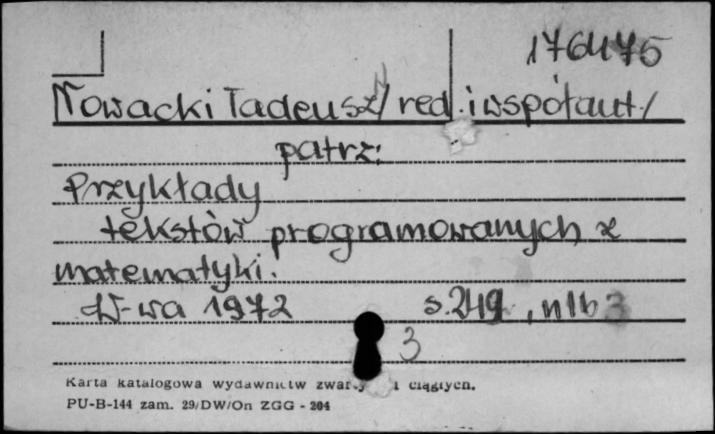 176475
Nowacki Tadeusz /red. i współaut./
patrz:
Przykłady
tekstów programowanych z
matematyki.
W-wa 1972 s. 249, nlb 3
3
Karta katalogowa wydawnictw zwartych i ciągłych.
PU-B-144 zam. 29/DW/On ZGG - 204